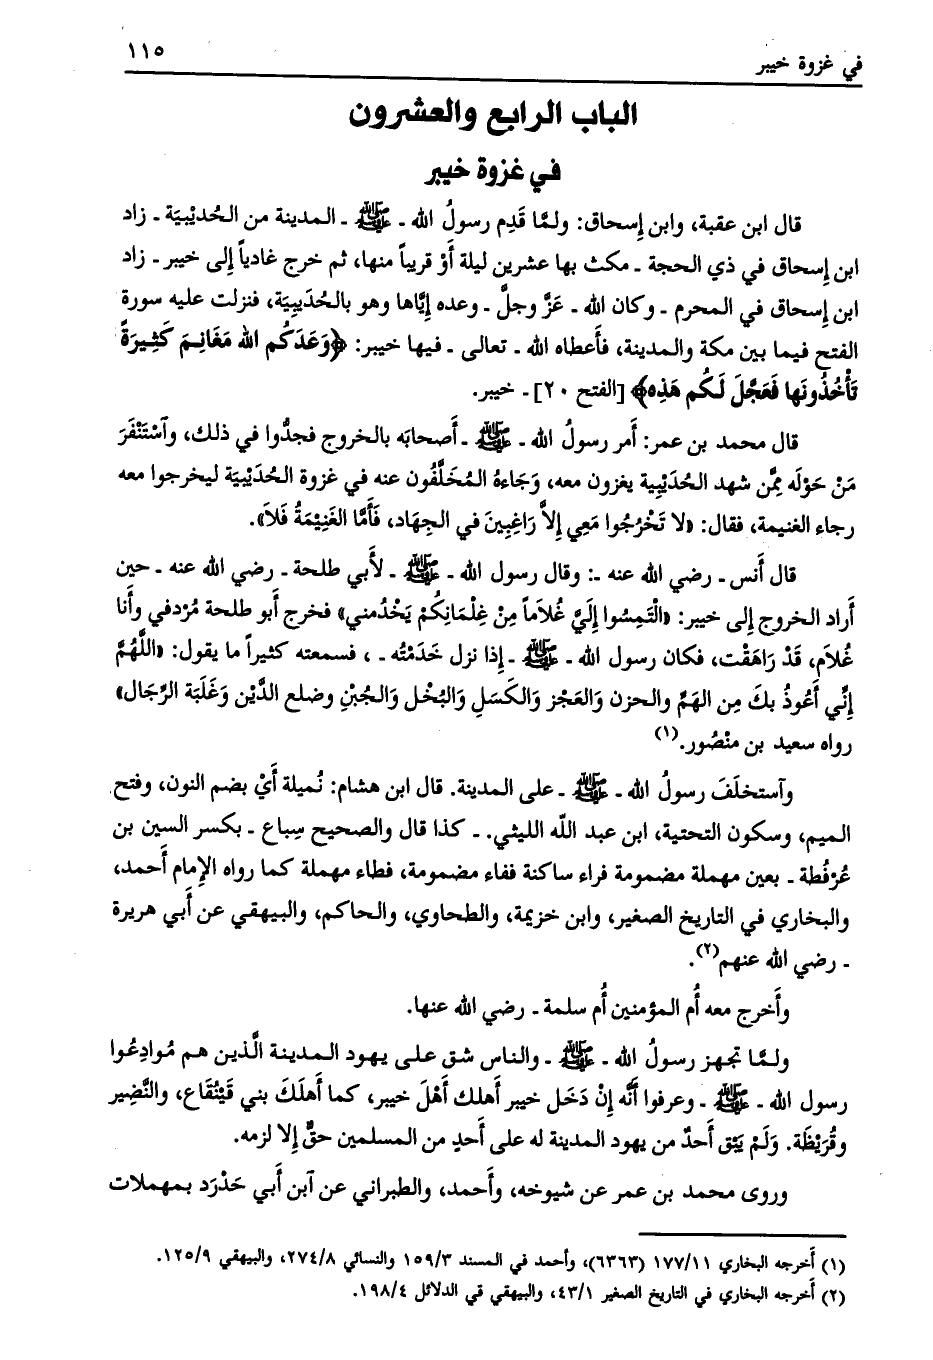 في غزوة خيبر
١١٥
الباب الرابع والعشرون
في غزوة خيبر
قال ابن عقبة، وابن إسحاق: ولمَّا قَدِم رسولُ الله ـ ﷺ ـ المدينة من الحُدَيْبيَة ـ زاد
ابن إسحاق في ذي الحجة ـ مكث بها عشرين ليلة أَوْ قريباً منها، ثم خرج غادياً إلى خيبر ـ زاد
ابن إسحاق في المحرم ـ وكان الله ـ عَزَّ وجلَّ ـ وعده إيَّاها وهو بالحُدَيبِيَة، فنزلت عليه سورة
الفتح فيما بين مكة والمدينة، فأعطاه الله ـ تعالى ـ فيها خيبر: ﴿وَعَدَكُم الله مَغَانِمَ كَثِيرَةً
تَأْخُذُونَها فَعَجَّلَ لَكُم هَذِه﴾ [الفتح ٢٠] ـ خيبر.
قال محمد بن عمر: أَمر رسولُ الله ـ ﷺ ـ أَصحابَه بالخروج فجدُّوا في ذلك، وٱسْتَنْفَرَ
مَنْ حَوْلَه مِمَّن شهد الحُدَيْبِية يغزون معه، وَجَاءهُ المُخَلَّفُون عنه في غزوة الحُدَيْبِيَة ليخرجوا معه
رجاء الغنيمة، فقال: «لا تَخْرُجُوا مَعِي إِلاَّ رَاغِبِينَ في الجِهَاد، فَأَمَّا الغَنِيْمَةُ فَلاَ».
قال أَنس ـ رضي الله عنه ـ: وقال رسول الله ـ ﷺ ـ لأَبي طلحة ـ رضي الله عنه ـ حين
أَراد الخروج إلى خيبر: «الْتَمِسُوا إِلَيَّ غُلاَماً مِنْ غِلْمَانِكُمْ يَخْدُمني» فخرج أَبو طلحة مُرْدفي وأَنا
غُلاَم، قَدْ رَاهَقْت، فكان رسول الله ـ ﷺ ـ إذا نزل خَدَمْتُه ـ ، فسمعته كثيراً ما يقول: «اللَّهُمَّ
إِنِّي أَعُوذُ بكَ مِن الهَمِّ والحزن والعَجْز والكَسَلِ والبُخْل والجُبْنِ وضلع الدَّيْن وَغَلَبَة الرِّجَال»
رواه سعيد بن منْصُور.(١)
وٱستخلَفَ رسولُ الله ـ ﷺ ـ على المدينة. قال ابن هشام: نُميلة أَيْ بضم النون، وفتح
الميم، وسكون التحتية، ابن عبد اللَّه الليثي. ـ كذا قال والصحيح سِباع ـ بكسر السين بن
عُرْفُطة ـ بعين مهملة مضمومة فراء ساكنة ففاء مضمومة، فطاء مهملة كما رواه الإمام أَحمد،
والبخاري في التاريخ الصغير، وابن خزيمة، والطحاوي، والحاكم، والبيهقي عن أَبي هريرة
ـ رضي الله عنهم(٢).
وأَخرج معه أُم المؤمنين أُم سلمة ـ رضي الله عنها.
ولمَّا تجهز رسولُ الله ـ ﷺ ـ والناس شق على يهود المدينة الَّذين هم مُوادِعُوا
رسول الله ـ ﷺ ـ وعرفوا أَنَّه إِنْ دَخَل خيبر أَهلك أَهْلَ خيبر، كما أَهلَكَ بني قَيْنُقَاع، والنَّضِير
وقُرَيْظَة. وَلَمْ يَبْق أَحدٌ من يهود المدينة له على أَحدٍ من المسلمين حقٌّ إلا لزمه.
وروى محمد بن عمر عن شيوخه، وأَحمد، والطبراني عن ٱبن أَبي حَدْرَد بمهملات
(١) أخرجه البخاري ١٧٧/١١ (٦٣٦٣)، وأحمد في المسند ١٥٩/٣ والنسائي ٢٧٤/٨، والبيهقي ١٢٥/٩.
(٢) أخرجه البخاري في التاريخ الصغير ٤٣/١، والبيهقي قي الدلائل ١٩٨/٤.